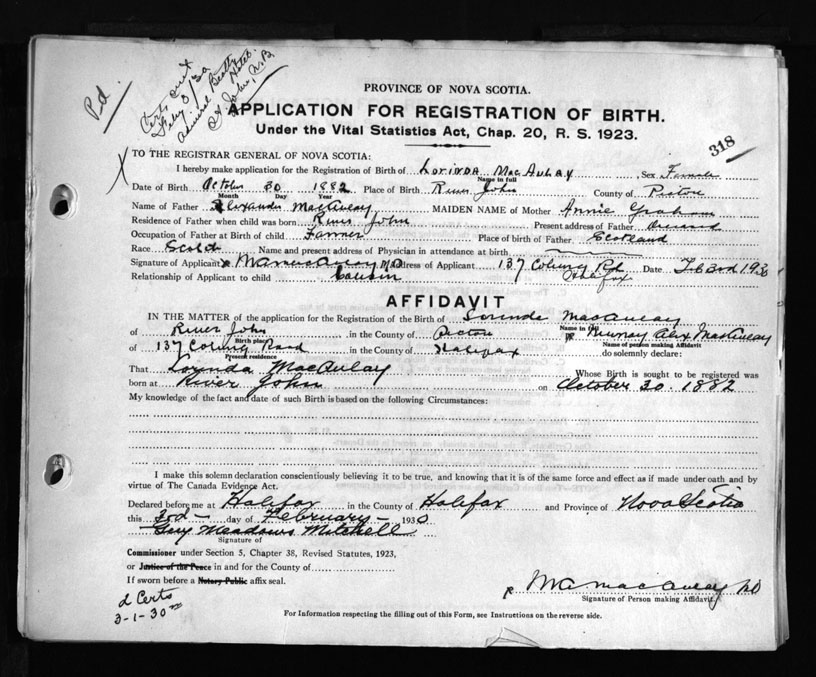 Pd.
Certs sent
Feby 8/30
Admiral Beatty
Hotel
St. John, N.B.
PROVINCE OF NOVA SCOTIA.
APPLICATION FOR REGISTRATION OF BIRTH.
Under the Vital Statistics Act, Chap. 20, R. S. 1923.
318
X TO THE REGISTRAR GENERAL OF NOVA SCOTIA:
I hereby make application for the Registration of Birth of Lorinda MacAulay Sex Female
Name in full
Date of Birth October 30 1882 Place of Birth River John County of Pictou
Month Day Year
Name of Father Alexander MacAulay MAIDEN NAME of Mother Annie Graham
Residence of Father when child was born River John Present address of Father
Occupation of Father at Birth of child Farmer Place of birth of Father Scotland
Race Scotch Name and present address of Physician in attendance at birth
Signature of Applicant x M A MacAulay MD Address of Applicant 137 Coburg Rd Halifax Date Feb 3rd 1930
Relationship of Applicant to child Cousin
AFFIDAVIT
IN THE MATTER of the application for the Registration of the Birth of Lorinda MacAulay
Name in full
of River John in the County of Pictou Murray Alex MacAulay
Birth place Name of person making Affidavit
of 137 Coburg Road in the County of Halifax do solemnly declare:
Present residence
That Lorinda MacAulay Whose Birth is sought to be registered was
born at River John on October 30 1882
My knowledge of the fact and date of such Birth is based on the following Circumstances:
I make this solemn declaration conscientiously believing it to be true, and knowing that it is of the same force and effect as if made under oath and by
virtue of The Canada Evidence Act.
Declared before me at Halifax in the County of Halifax and Province of Nova Scotia
this 3rd day of February 1930
Guy Meadows Mitchell
Signature of
Commissioner under Section 5, Chapter 38, Revised Statutes, 1923,
or Justice of the Peace in and for the County of
If sworn before a Notary Public affix seal.
x M A MacAulay MD
Signature of Person making Affidavit.
d Certs
3-1-30
For Information respecting the filling out of this Form, see Instructions on the reverse side.